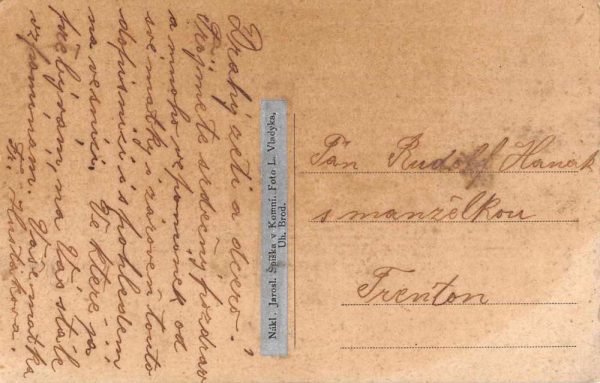 Drahý zeti a dcero!
Přijmete srdečný pozdrav
a mnoho vzpomínek od
své matky s zároveň touto
dopisnici i s pohledem
na vesnici. Ve které ja
přebývám, na Vás stále
vzpomínám. Vaše matka
Fr.
Nákl. Jarosl. Špiška v Komni. Foto L. Vladyka,
Uh. Brod.
Pán Rudolf Hanák
s manželkou
Trenton